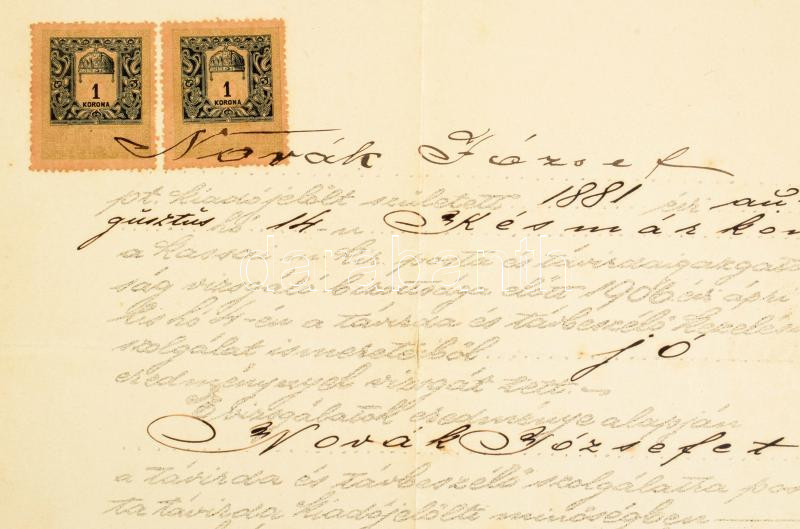 1
KORONA
1
KORONA
Novák József
pt. kiadójelölt született 1881 év au-
gusztus hó 14-n Késmárkon
a kassai m. kir. posta és távirdaigazgató
ság vizsgáló bizottsága előtt 1906 évi ápri
lis hó 4-én a távirda és távbeszélő kezelési
szolgálat ismeretéből jó
eredménynyel vizsgát tett.
E vizsgálatok eredménye alapján
Novák Józsefet
a távirda és távbeszélő szolgálatra pos
ta távirda kiadójelölti minőségben
darabanth